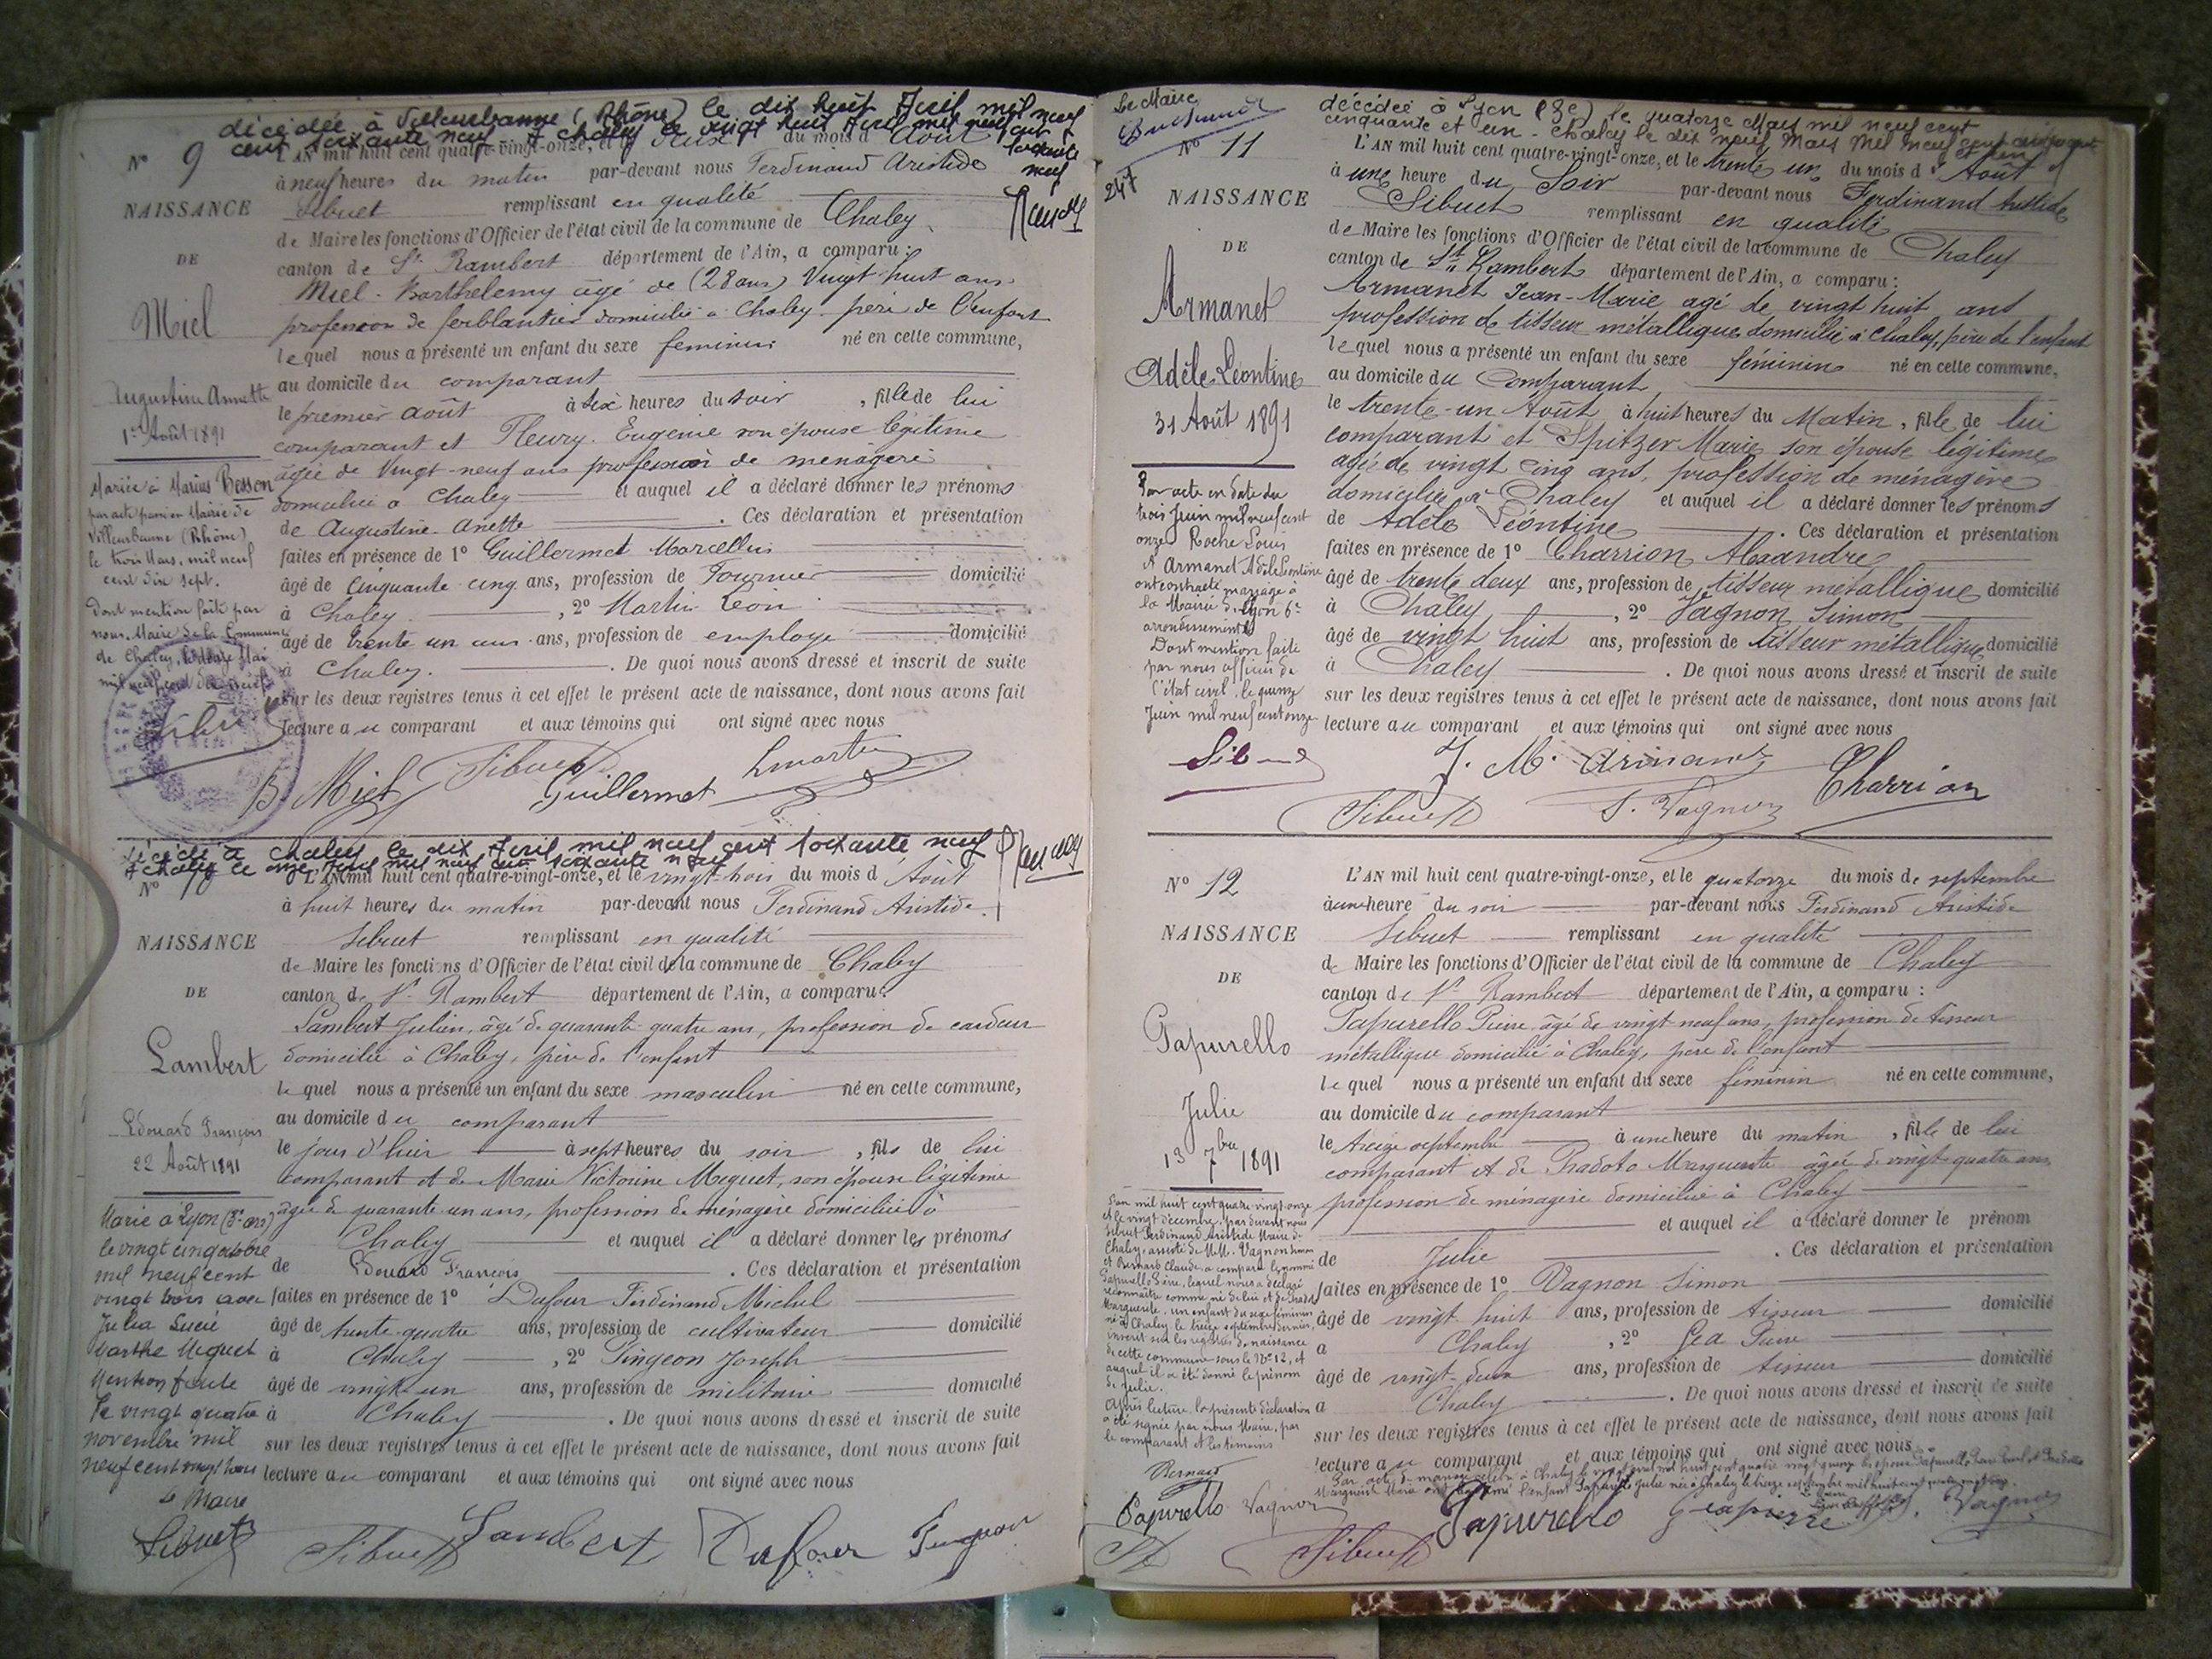 décédée à Villeurbanne (Rhône) le dix huit Avril mil neuf
cent soixante neuf - A chaley le vingt huit Avril mil neuf cent
soixante
neuf
N° 9
L'AN mil huit cent quatre-vingt-onze, et le deux du mois d'Août
à neuf heures du matin par-devant nous Ferdinand Aristide
NAISSANCE
Sibuet remplissant en qualité
de Maire les fonctions d'Officier de l'état civil de la commune de Chaley
DE
canton de St Rambert département de l'Ain, a comparu :
Miel Barthelemy âgé de (28 ans) Vingt-huit ans
Miel
profession de ferblantier domicilié à Chaley père de l'enfant
lequel nous a présenté un enfant du sexe feminin né en cette commune,
au domicile du comparant
Augustine Annette
1er Août 1891
le premier août à six heures du soir, fille de lui
comparant et Fleury Eugénie son épouse légitime
âgée de Vingt-neuf ans profession de menagere
domiciliée à Chaley et auquel il a déclaré donner les prénoms
de Augustine Anette. Ces déclaration et présentation
faites en présence de 1° Guillermet Marcellin
âgé de cinquante cinq ans, profession de domicilié
à Chaley, 2° Martin Léon
âgé de trente un ans ans, profession de employé domicilié
à Chaley. De quoi nous avons dressé et inscrit de suite
sur les deux registres tenus à cet effet le présent acte de naissance, dont nous avons fait
lecture au comparant et aux témoins qui ont signé avec nous
Mariée à Marius Besson
par acte passé en Mairie de
Villeurbanne (Rhône)
le trois Mars, mil neuf
cent dix sept.
Dont mention faite par
nous, Maire de la Commune
de Chaley, le Mai
mil neuf cent dix
Sibuet
B. Miel Sibuet Guillermet L martin
décédé à chaley le dix Avril mil neuf cent soixante neuf
A chaley le onze Avril mil neuf cent soixante neuf
N°
L'AN mil huit cent quatre-vingt-onze, et le vingt-trois du mois d'Août
à huit heures du matin par-devant nous Ferdinand Aristide
NAISSANCE
Sibuet remplissant en qualité
de Maire les fonctions d'Officier de l'état civil de la commune de Chaley
DE
canton de St Rambert département de l'Ain, a comparu :
Lambert Julien, âgé de quarante quatre ans, profession de cardeur
Lambert
domicilié à Chaley, père de l'enfant
lequel nous a présenté un enfant du sexe masculin né en cette commune,
au domicile du comparant
Edouard François
22 Août 1891
le jour d'hier à sept heures du soir, fils de lui
comparant et de Marie Victorine Miguet, son épouse légitime
âgée de quarante un ans, profession de ménagère domiciliée à
Chaley et auquel il a déclaré donner les prénoms
de Edouard François. Ces déclaration et présentation
faites en présence de 1° Dufour Ferdinand Michel
âgé de trente-quatre ans, profession de cultivateur domicilié
à Chaley, 2° Pingeon Joseph
âgé de vingt un ans, profession de militaire domicilié
à Chaley. De quoi nous avons dressé et inscrit de suite
sur les deux registres tenus à cet effet le présent acte de naissance, dont nous avons fait
lecture au comparant et aux témoins qui ont signé avec nous
Marié à Lyon (3e arr)
le vingt cinq octobre
mil neuf cent
vingt trois avec
Julia Lucie
Marthe Miguet
Mention faite
le vingt quatre
novembre mil
neuf cent vingt trois
Le Maire
Sibuet
Sibuet Lambert Dufour Pingeon
Le Maire
décédée à Lyon (3e) le quatorze Mars mil neuf cent
cinquante et un - Chaley le dix neuf Mars mil neuf cent cinquante
et un
N° 11
247
L'AN mil huit cent quatre-vingt-onze, et le trente un du mois d'Août
à une heure du Soir par-devant nous Ferdinand Aristide
NAISSANCE
Sibuet remplissant en qualité
de Maire les fonctions d'Officier de l'état civil de la commune de Chaley
DE
canton de St Rambert département de l'Ain, a comparu :
Armanet Jean-Marie agé de vingt huit ans
Armanet
profession de tisseur métallique domicilié à Chaley, père de l'enfant
lequel nous a présenté un enfant du sexe féminin né en cette commune,
Adèle Léontine
au domicile du Comparant
le trente-un Août à huit heures du Matin, fille de lui
31 Août 1891
comparant et Spitzer Marie son épouse légitime
agée de vingt cinq ans, profession de ménagère
domiciliée à Chaley et auquel il a déclaré donner les prénoms
de Adèle Léontine. Ces déclaration et présentation
faites en présence de 1° Charrion Alexandre
âgé de trente deux ans, profession de tisseur métallique domicilié
à Chaley, 2° Vagnon Simon
âgé de vingt huit ans, profession de tisseur métallique domicilié
à Chaley. De quoi nous avons dressé et inscrit de suite
sur les deux registres tenus à cet effet le présent acte de naissance, dont nous avons fait
lecture au comparant et aux témoins qui ont signé avec nous
Par acte en date du
trois Juin mil neuf cent
onze Roche Louis
et Armanet Adèle Léontine
ont contracté mariage à
la Mairie de Lyon 6e
arrondissement
Dont mention faite
par nous officier de
l'état civil, le quinze
Juin mil neuf cent onze
J. M. Armanet Charrion
Sibuet S. Vagnon
N° 12
L'AN mil huit cent quatre-vingt-onze, et le quatorze du mois de septembre
à une heure du soir par-devant nous Ferdinand Aristide
NAISSANCE
Sibuet remplissant en qualité
de Maire les fonctions d'Officier de l'état civil de la commune de Chaley
DE
canton de St Rambert département de l'Ain, a comparu :
Papurello Pierre âgé de vingt neuf ans, profession de tisseur
Papurello
métallique domicilié à Chaley, père de l'enfant
lequel nous a présenté un enfant du sexe féminin né en cette commune,
Julie
au domicile du comparant
le treize septembre à une heure du matin, fille de lui
13 7bre 1891
comparant et de Pradoto Marguerite âgée de vingt quatre ans
profession de ménagère domiciliée à Chaley
et auquel il a déclaré donner le prénom
de Julie. Ces déclaration et présentation
faites en présence de 1° Vagnon Simon
âgé de vingt huit ans, profession de tisseur domicilié
à Chaley, 2° Gea Pierre
âgé de vingt-deux ans, profession de tisseur domicilié
à Chaley. De quoi nous avons dressé et inscrit de suite
sur les deux registres tenus à cet effet le présent acte de naissance, dont nous avons fait
lecture au comparant et aux témoins qui ont signé avec nous
L'an mil huit cent quatre-vingt-onze
et le vingt décembre, par devant nous
Sibuet Ferdinand Aristide Maire de
Chaley, assisté de MM. Vagnon Simon
et Bernard Claude, a comparu le nommé
Papurello Pierre, lequel nous a déclaré
reconnaître comme né de lui et de
Marguerite, un enfant du sexe féminin
né à Chaley le treize septembre dernier,
inscrit sur les registres de naissance
de cette commune sous le N° 12, et
auquel il a été donné le prénom
de Julie.
Après lecture, la présente déclaration
a été signée par nous Maire, par
le comparant et les témoins
Bernard
Papurello Vagnon
Sibuet Papurello Gea pierre Vagnon